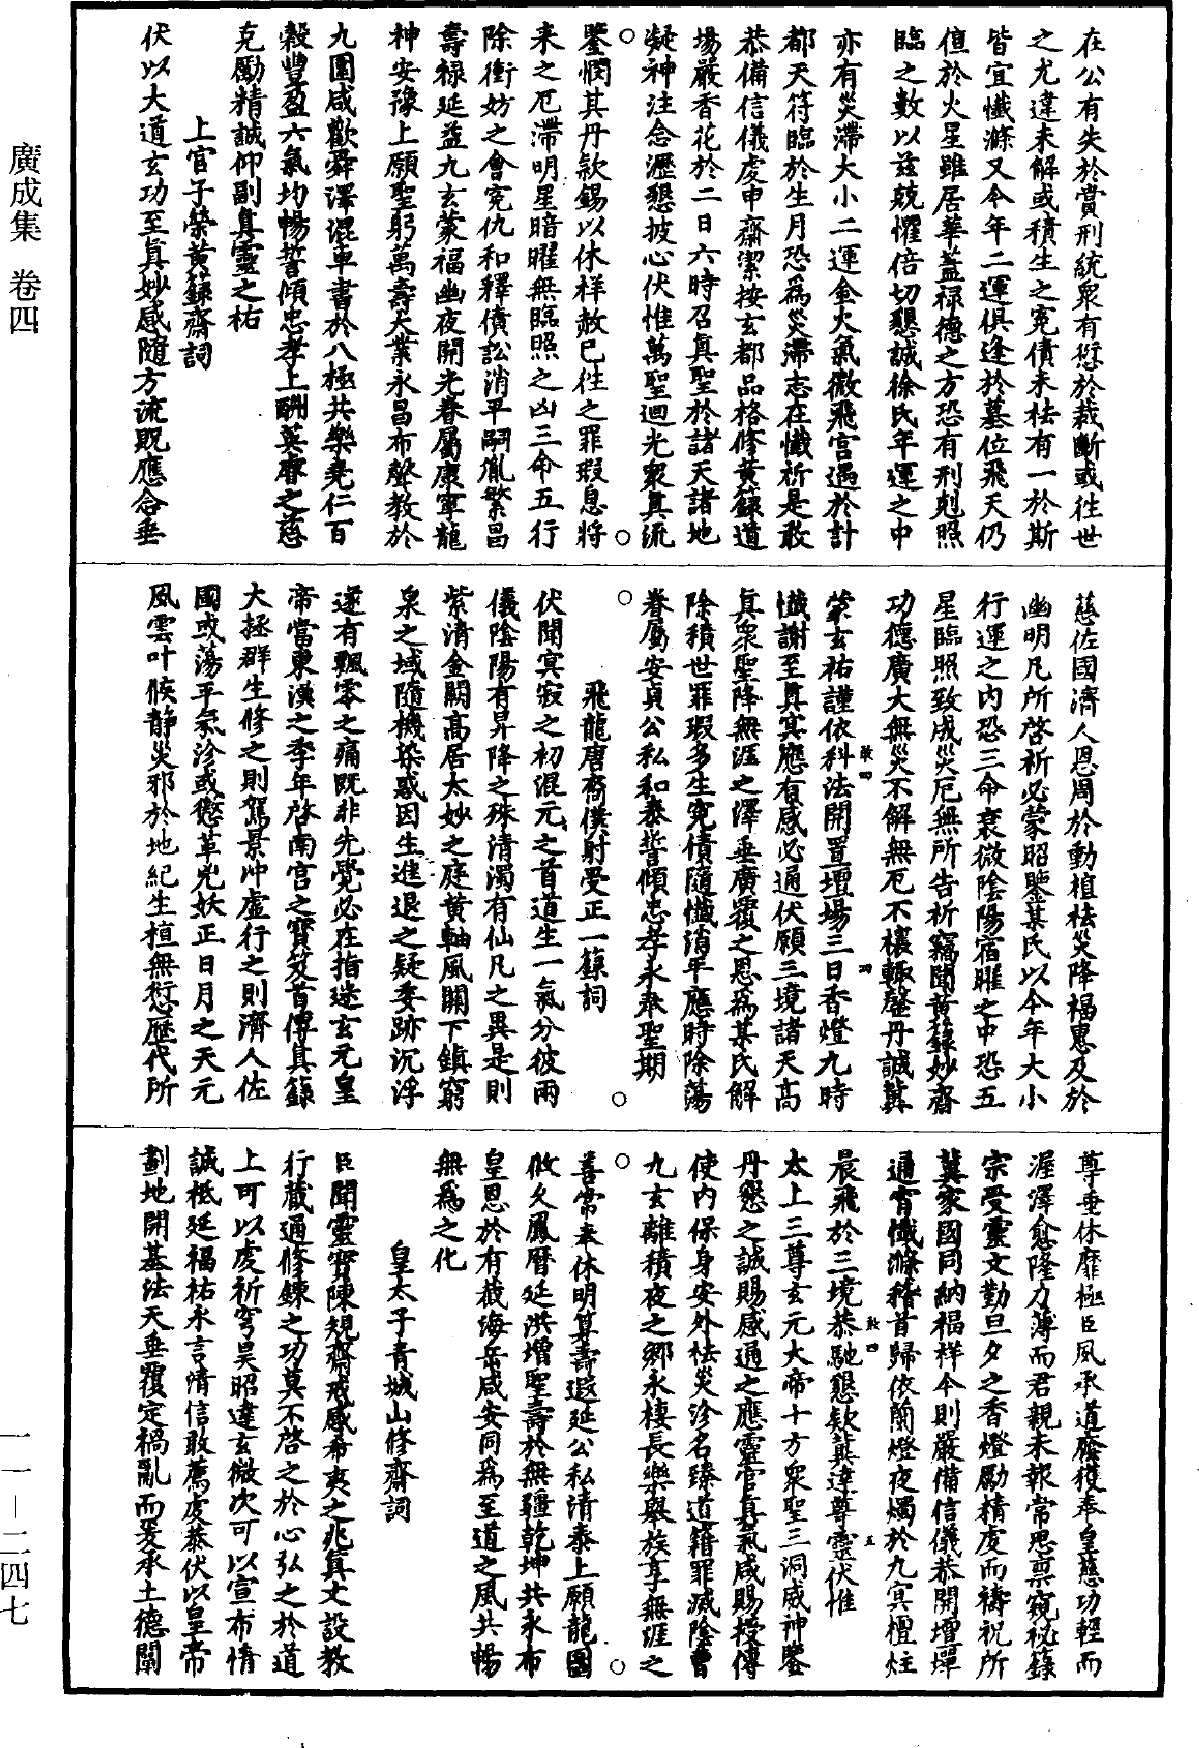 廣成集　卷四
在公有失於賞刑統衆有愆於裁斷或往世
之尤違未解或積生之冤債未祛有一於斯
皆宜懺滌又今年二運俱逢於墓位飛天仍
值於火星雖居華蓋祿德之方恐有刑剋照
臨之數以茲兢懼倍切懇誠徐氏年運之中
亦有災滯大小二運金火氣微飛宫遇於計
都天符臨於生月恐爲災滯志在懺祈是敢
恭備信儀虔申齋潔按玄都品格修黄籙道
場嚴香花於二日六時召真聖於諸天諸地
凝神注念瀝懇披心伏惟萬聖迴光衆真流
鑒憫其丹欵錫以休祥赦已往之罪瑕息將
来之厄滯明星暗曜無臨照之凶三命五行
除衝妨之會冤仇和釋債訟消平嗣胤繁昌
壽禄延益九玄蒙福幽夜開光眷屬康寧龍
神安豫上願聖躬萬壽大業永昌布聲教於
九圍咸歡舜澤混車書於八極共樂堯仁百
榖豐盈六氣均暢誓傾忠孝上酬英睿之慈
克勵精誠仰副真靈之祐
上官子榮黄籙齋詞
伏以大道玄功至真妙感隨方流貺應念垂
慈佐國濟人恩周於動植祛災降福惠及於
幽明凡所啓祈必蒙昭鑒某氏以今年大小
行運之内恐三命衰微陰陽宿曜之中恐五
星臨照致成災厄無所告祈竊聞黄籙妙齋
功德廣大無災不解無厄不禳輒罄丹誠冀
蒙玄祐謹依科法開置壇場三日香燈九時
懺謝至真冥應有感必通伏願三境諸天高
真衆聖降無涯之澤垂廣覆之恩爲某氏解
除積世罪瑕多生冤債隨懺消平應時除蕩
眷屬安貞公私和泰誓傾忠孝永奉聖期
飛龍唐裔僕射受正一籙詞
伏聞冥寂之初混元之首道生一氣分彼兩
儀陰陽有昇降之殊清濁有仙凡之異是則
紫清金闕高居太妙之庭黄軸風關下鎮窮
泉之域隨機染惑因生進退之疑委跡沉浮
遂有飄零之痛既非先覺必在指迷玄元皇
帝當東漢之季年啓南宫之寶笈首傳真籙
大拯群生修之則駕景冲虚行之則濟人佐
國或蕩平氛沴或懲革兇妖正日月之天元
風雲叶候静災邪於地紀生植無愆歷代所
尊垂休靡極臣風承道廕獲奉皇慈功輕而
渥澤愈隆力薄而君親未報常思禀窺祕籙
宗受靈文勤旦夕之香燈勵精虔而禱祝所
冀家國同納福祥今則嚴備信儀恭開增墠
通宵懺滌稽首歸依蘭燈夜燭於九冥檀炷
晨飛於三境恭馳懇欵冀達尊靈伏惟
太上三尊玄元大帝十方衆聖三洞威神鑒
丹懇之誠賜感通之應靈官真氣咸賜授傳
使内保身安外祛災沴名臻道籍罪滅陰曹
九玄離積夜之鄉永棲長樂舉族享無涯之
善常来休明算壽遐延公私清泰上願龍圖
攸久鳳曆延洪增聖壽於無疆乾坤共永布
皇恩於有截海岳咸安同爲至道之風共暢
無爲之化
皇太子青城山修齋詞
臣聞靈寶陳規齋戒感希夷之兆真文設教
行藏通修鍊之功莫不啓之於心弘之於道
上可以虔祈穹昊昭達玄微次可以宣布情
誠祗延福祐永言情信敢薦虔恭伏以皇帝
劃地開基法天垂覆定禍亂而爰承土德闡
一一－二四七